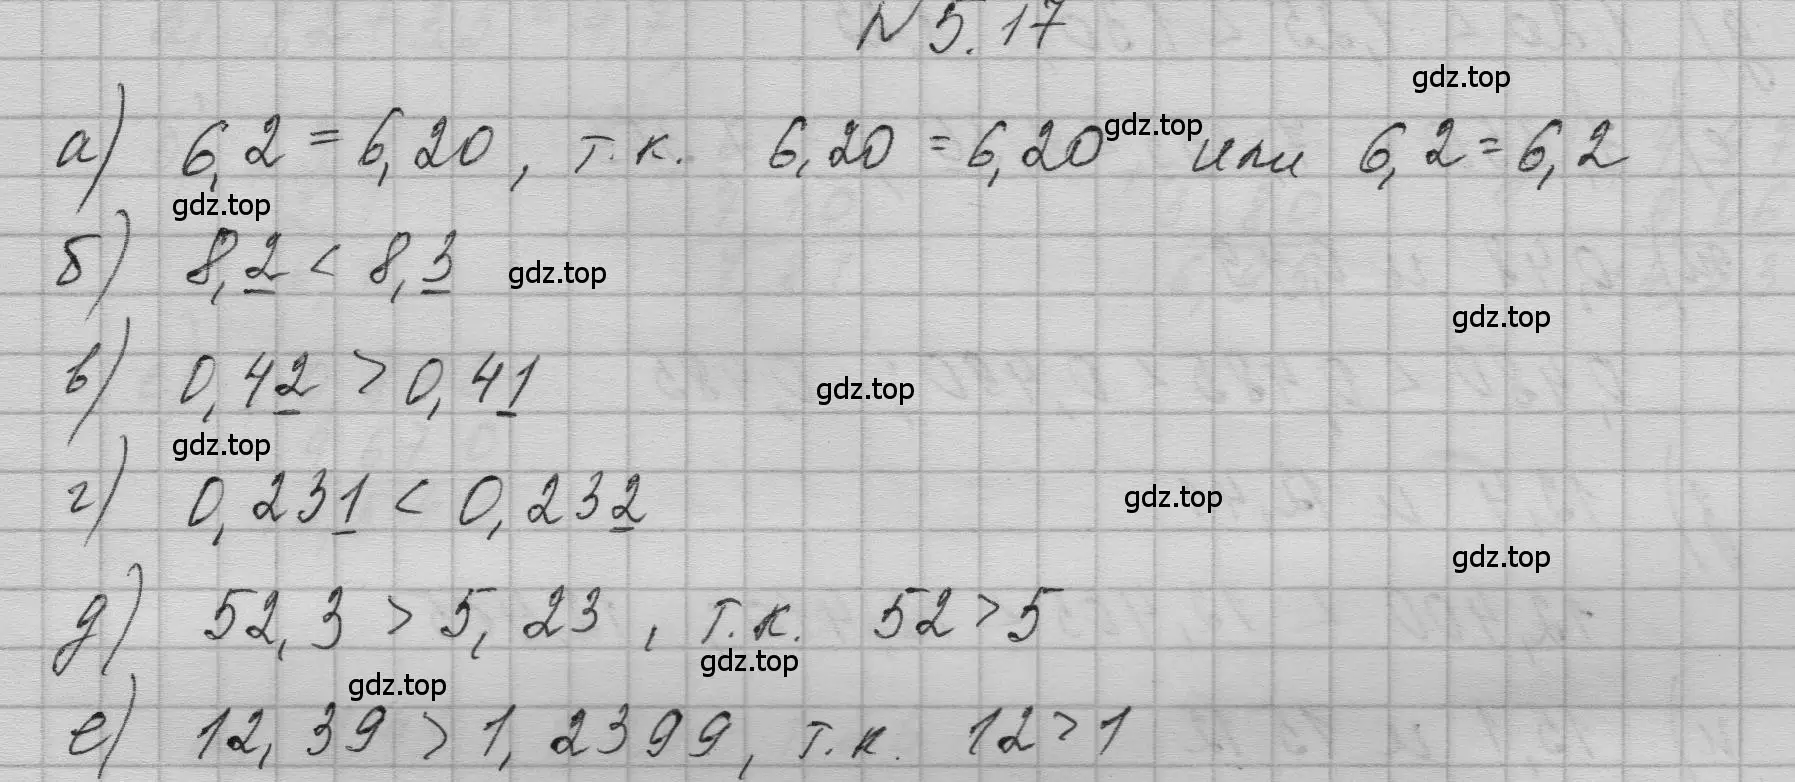 № 5.17
gdz.top
а) 6,2 = 6,20, т.к. 6,20 = 6,20 gdz.top или 6,2 = 6,2
gdz.top
б) 8,2 < 8,3 gdz.top
gdz.top
в) 0,42 > 0,41 gdz.top
gdz.top
г) 0,231 < 0,232 gdz.top
gdz.top
д) 52,3 > 5,23, т.к. 52 > 5
gdz.top
gdz.top
е) 12,39 > 1,2399, т.к. 12 > 1